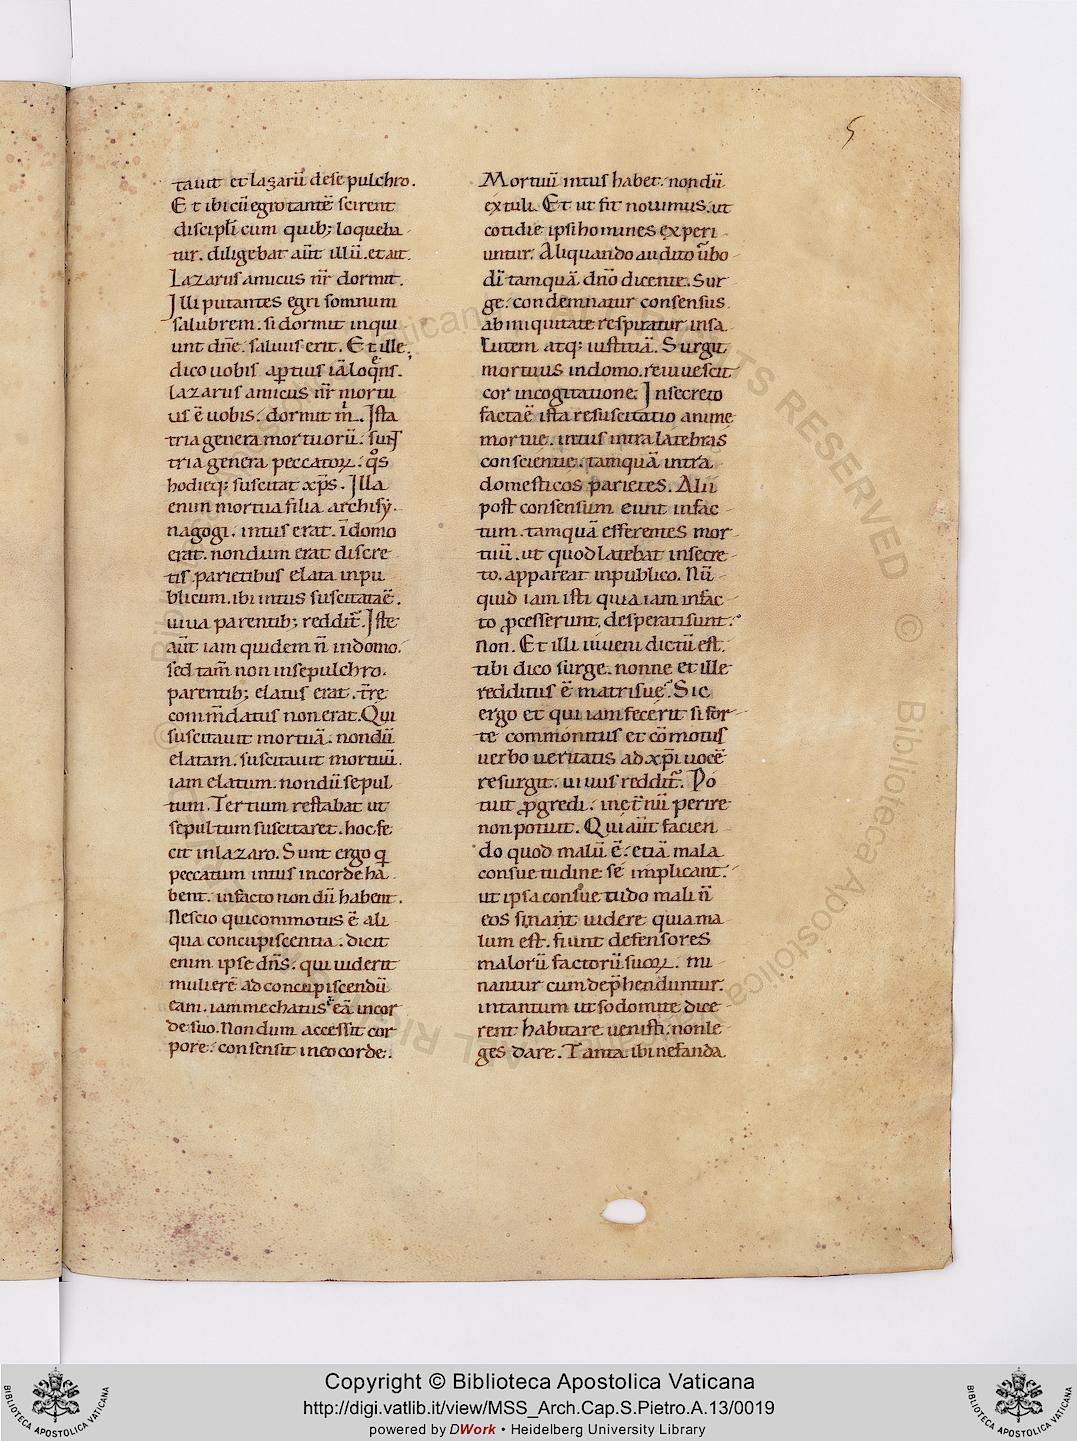 5
tauit et lazarū de sepulchro.
Et ibi cū egrotantē scirent
discipłi cum quib; loqueba
tur. diligebat aūt illū. et ait.
Lazarus amicus nr̄ dormit.
Illi putantes egri somnum
salubrem. si dormit inqui
unt dn̄e. saluus erit. Et ille,
dico uobis aptius iā loqns.
lazarus amicus nr̄ mortu
us ē uobis. dormit m̄. Ista
tria genera mortuorū. sunt
tria genera peccatoꝝ. q̊s
hodieq; suscitat xp̄s. Illa
enim mortua filia archisy
nagogi. intus erat. ī domo
erat. nondum erat de secre
tis parietibus elata in pu
blicum. ibi intus suscitata ē.
uiua parentib; reddit̄. Iste
aūt iam quidem n̄ in domo.
sed tam̄ non in sepulchro.
parentib; elatus erat. t̄re
com̄datus non erat. Qui
suscitauit mortuā. nondū
elatam. suscitauit mortuū.
iam elatum. nondū sepul
tum. Tertium restabat ut
sepultum suscitaret. hoc fe
cit in lazaro. Sunt ergo q̄
peccatum intus in corde ha
bent. in facto non dū habent.
Nescio qui commotus ē ali
qua concupiscentia. dicit
enim ipse dn̄s. qui uiderit
mulierē ad concupiscendū
eam. iam mechatus ē eā in cor
de suo. Nondum accessit cor
pore. consensit in eo corde.
Mortuū intus habet. nondū
extuli. Et ut fit nouimus. ut
cotidie ipsi homines experi
untur. Aliquando audito ūbo
dī tamquā dn̄o dicente. Sur
ge. condemnatur consensus
ab iniquitate respiratur in sa
lutem atq; iustitiā. Surgit
mortuus in domo. reuiuescit
cor in cogitatione. In secreto
facta ē ista resuscitatio anime
mortue. intus intra latebras
conscientie. tamquā intra
domesticos parietes. Alii
post consensum eunt in fac
tum. tamquā efferentes mor
tuū. ut quod latebat in secre
to. appareat in publico. Nū
quid iam isti quia iam in fac
to ꝓcesserunt, desperati sunt.
Non. Et illi iuueni dictū est.
tibi dico surge. nonne et ille
redditus ē matri sue. Sic
ergo et qui iam fecerit si for
te commonitus et cōmotus
uerbo ueritatis ad xp̄i uocē
resurgit. uiuus reddit̄. Po
tuit ꝓgredi. in et̄nū perire
non potuit. Qui aūt facien
do quod malū ē. etiā mala
consuetudine se implicant.
ut ipsa consuetudo mali n̄
eos sinat uidere quia ma
lum est. fiunt defensores
malorū factorū suoꝝ. mi
nantur cum dep̄henduntur.
in tantum ut sodomite dice
rent habitare uenisti. non le
ges dare. Tanta ibi nefanda
Copyright © Biblioteca Apostolica Vaticana
http://digi.vatlib.it/view/MSS_Arch.Cap.S.Pietro.A.13/0019
powered by DWork • Heidelberg University Library
BIBLIOTECA APOSTOLICA VATICANA
BIBLIOTECA APOSTOLICA VATICANA
© Biblioteca Apostolica Vaticana ALL RIGHTS RESERVED
© Biblioteca Apostolica Vaticana ALL RIGHTS RESERVED